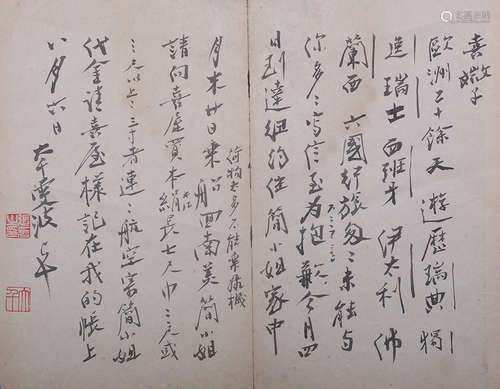 喜敏子
歐洲二十餘天遊歷瑞典獨
逸瑞士西班牙伊太利佛
蘭西六國行旅匆匆未能与
你多多写信至为抱歉今月四
日到達紐約住簡小姐家中
月末廿日乘船回南美簡小姐
荷物太多不能乘飛機
請向喜屋買本絹長七尺巾三尺或
三尺以上三寸者速速航空寄簡小姐
代金請喜屋樣記在我的帳上
八月六日 大千